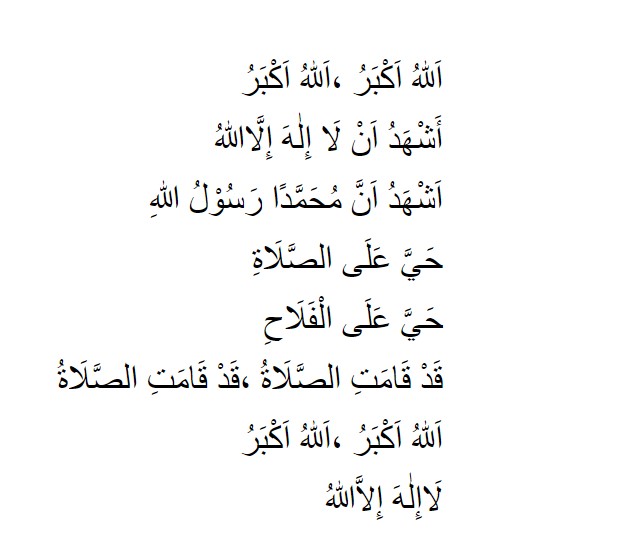 اَللهُ اَكْبَرُ ،اَللهُ اَكْبَرُ
أَشْهَدُ اَنْ لَا إِلٰهَ إِلَّااللهُ
اَشْهَدُ اَنَّ مُحَمَّدًا رَسُوْلُ اللهِ
حَيَّ عَلَى الصَّلَاةِ
حَيَّ عَلَى الْفَلَاحِ
قَدْ قَامَتِ الصَّلَاةُ ،قَدْ قَامَتِ الصَّلَاةُ
اَللهُ اَكْبَرُ ،اَللهُ اَكْبَرُ
لَاإِلٰهَ إِلاَّاللهُ